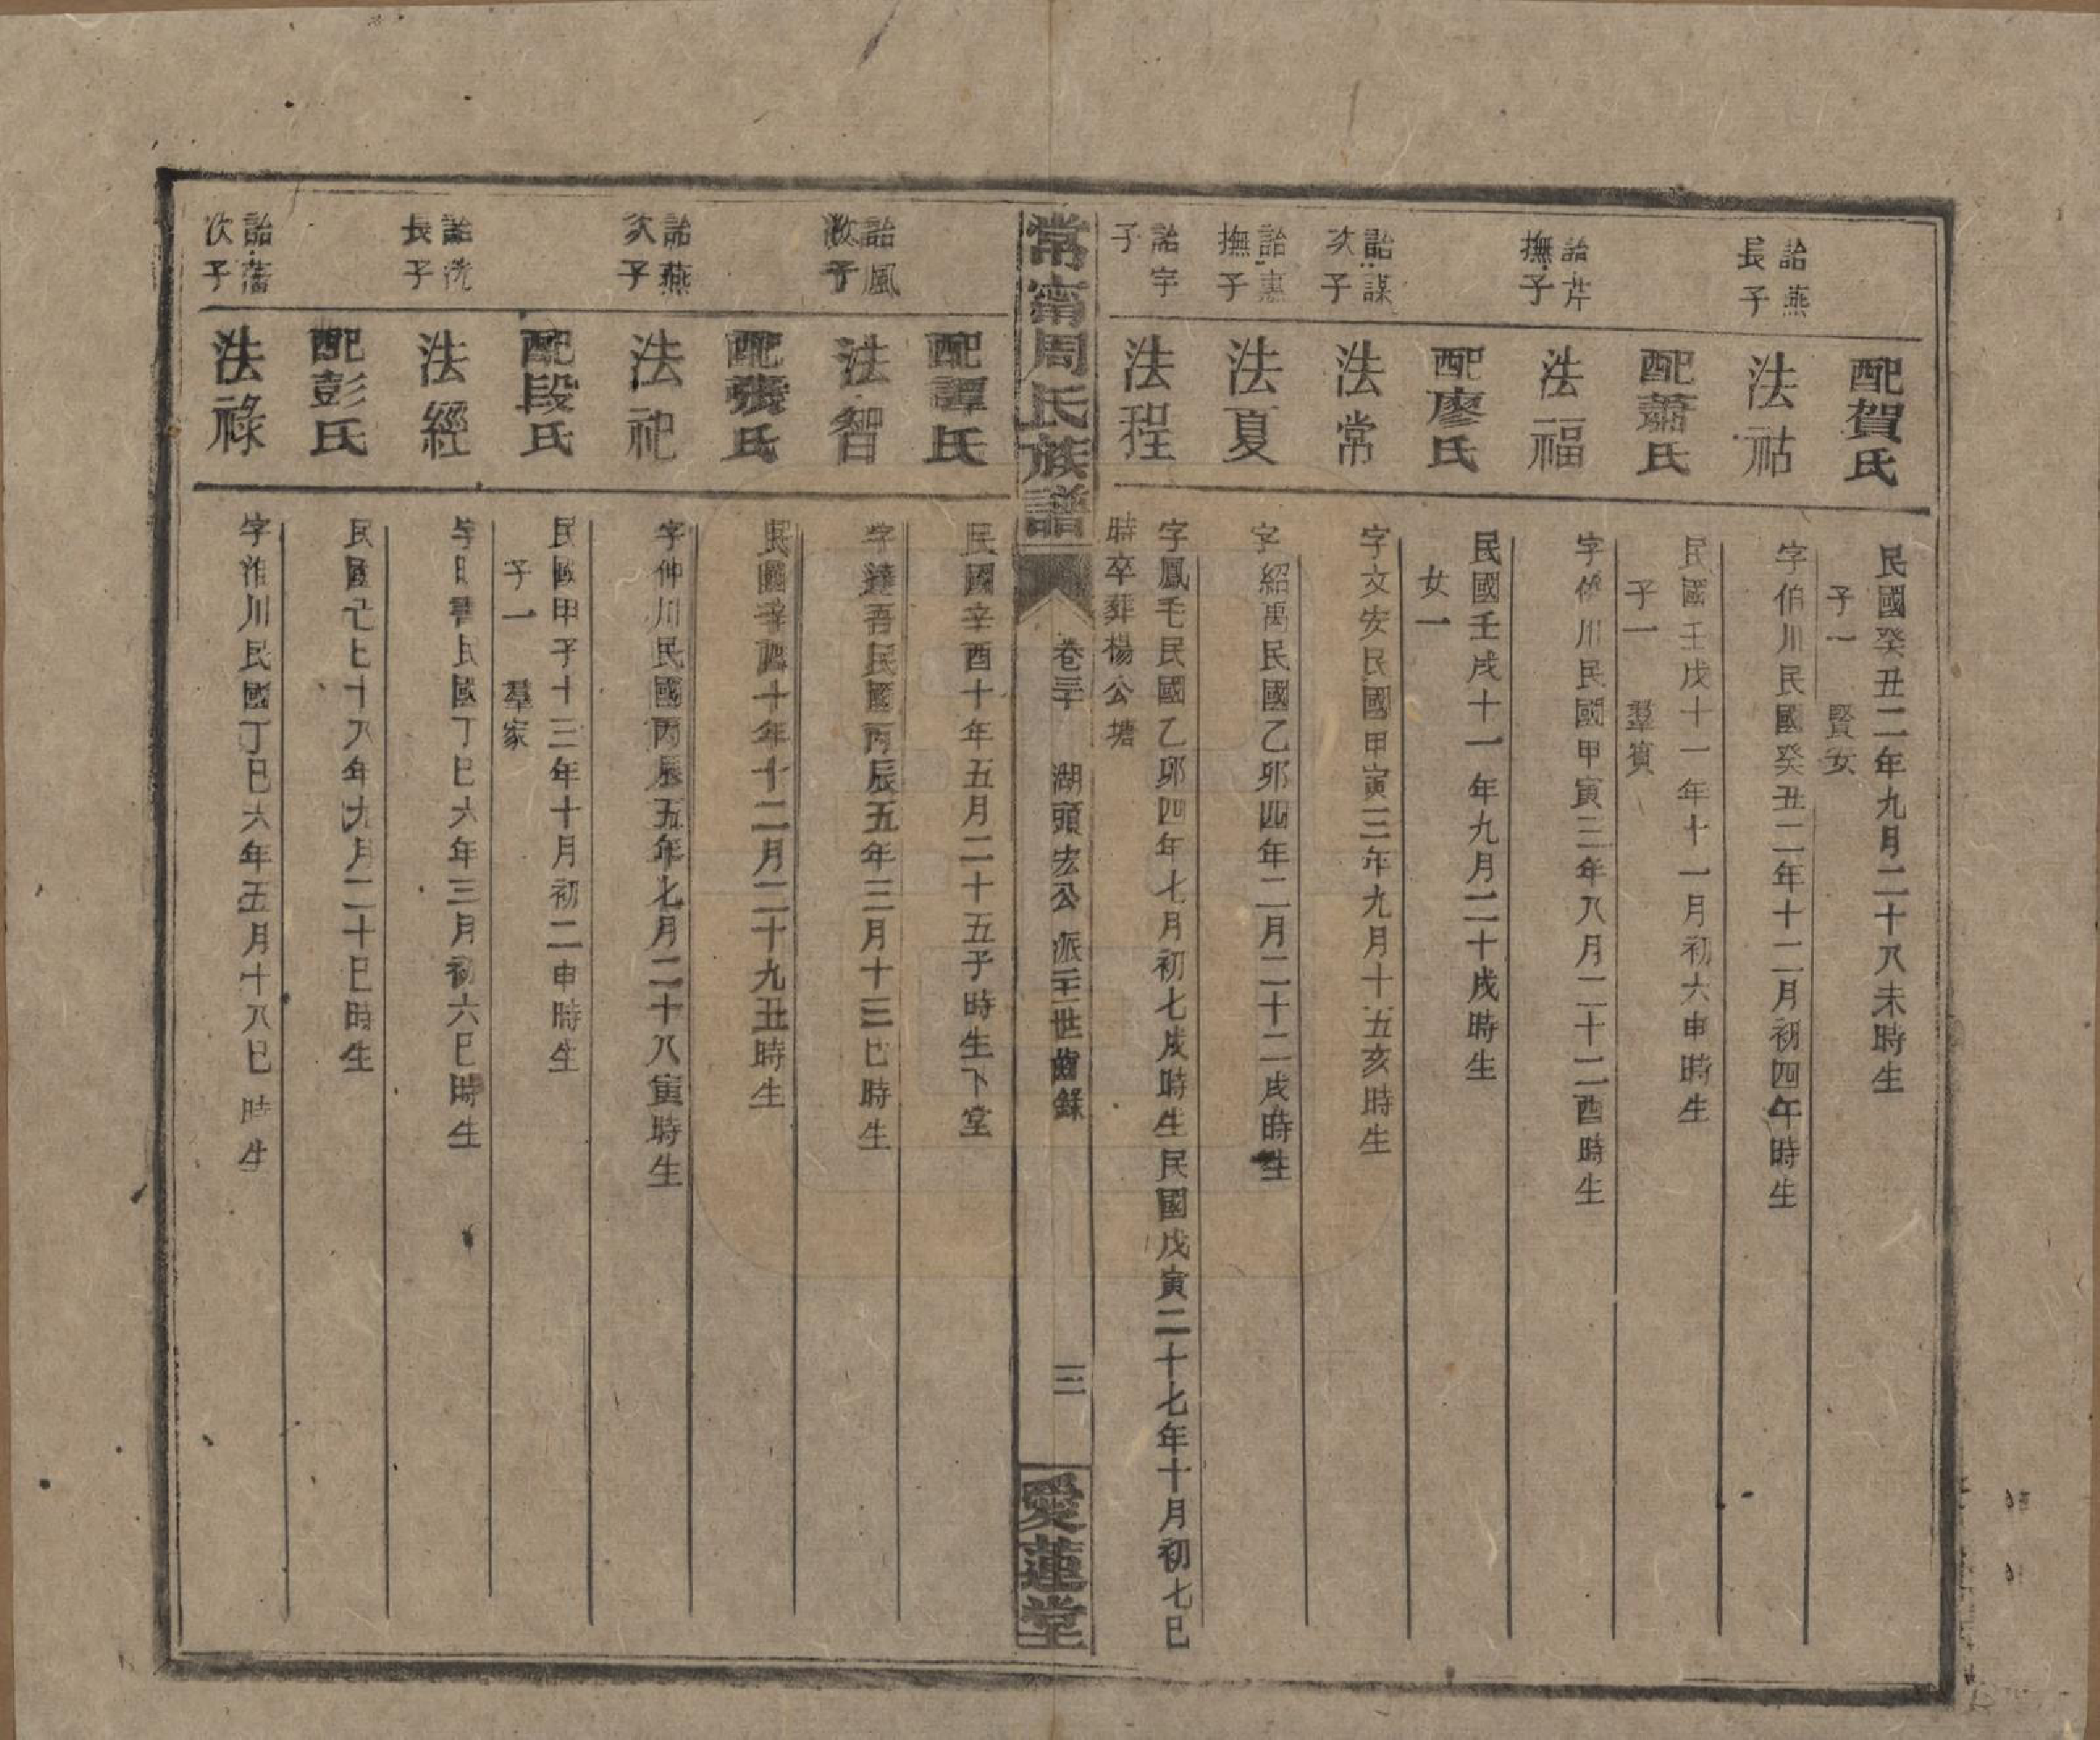 配賀氏
民國癸丑二年九月二十八未時生
子一 賢安
詒燕
長子
法祜
字伯川民國癸丑二年十二月初四午時生
配蕭氏
民國壬戌十一年十一月初六申時生
子一 羣賓
詒芹
撫子
法福
字 川民國甲寅三年八月二十二酉時生
配廖氏
民國壬戌十一年九月二十戌時生
女一
詒謀
次子
法常
字文安民國甲寅三年九月十五亥時生
詒惠
撫子
法夏
字紹禹民國乙卯四年二月二十二戌時生
詒宇
子
法程
字鳳毛民國乙卯四年七月初七戌時生民國戊寅二十七年十月初七巳
時卒葬楊公塘
常甯周氏族譜
卷三 湖頭宏公派 世齒錄
三
愛蓮堂
配譚氏
民國辛酉十年五月二十五子時生下堂
詒風
次子
法智
字達吾民國丙辰五年三月十三巳時生
配張氏
民國辛酉十年十二月二十九丑時生
詒燕
次子
法祀
字仲川民國丙辰五年七月二十八寅時生
配段氏
民國甲子十三年十月初二申時生
子一 羣家
詒洗
長子
法經
字 民國丁巳六年三月初六巳時生
配彭氏
民國己七十八年九月二十巳時生
詒藩
次子
法祿
字淮川民國丁巳六年五月十八巳時生